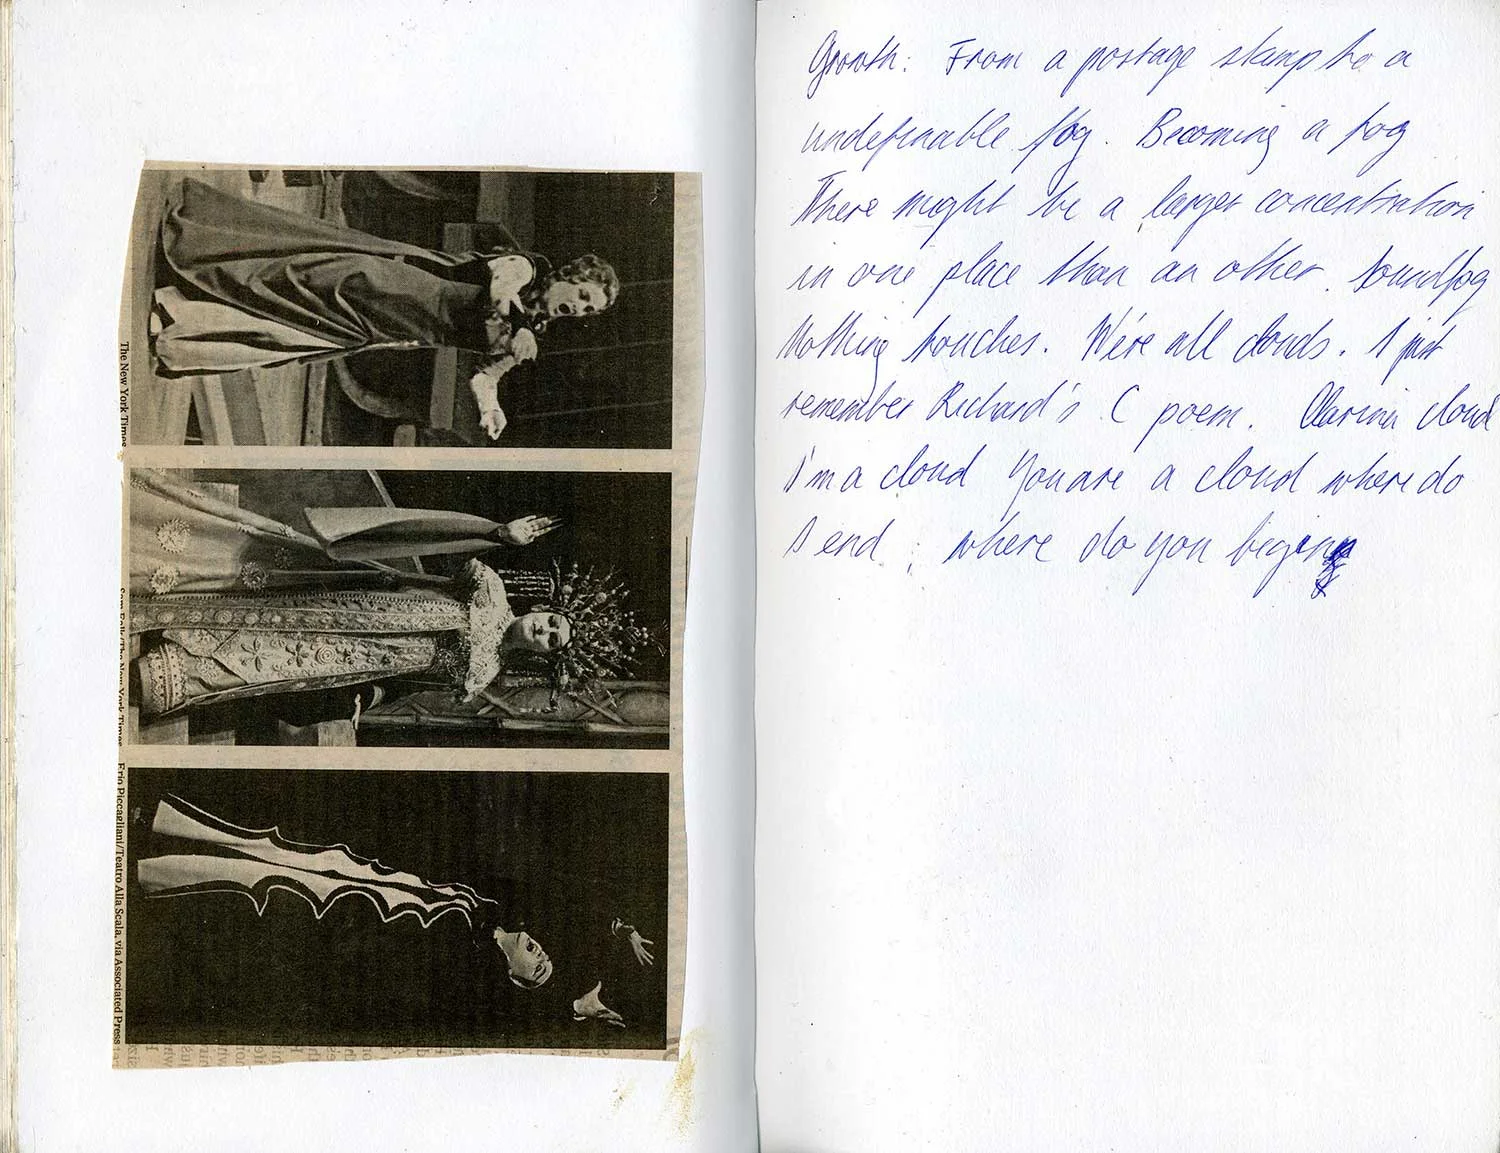 The New York Times
Sam Falk/The New York Times
Erio Piccagliani/Teatro Alla Scala, via Associated Press
Growth: From a postage stamp to a
undefinable fog. Becoming a fog
There might be a larger concentration
in one place than an other. Soundfog
Nothing touches. We're all clouds. I just
remember Richard's C poem. cloud
I'm a cloud You are a cloud where do
I end, where do you begin